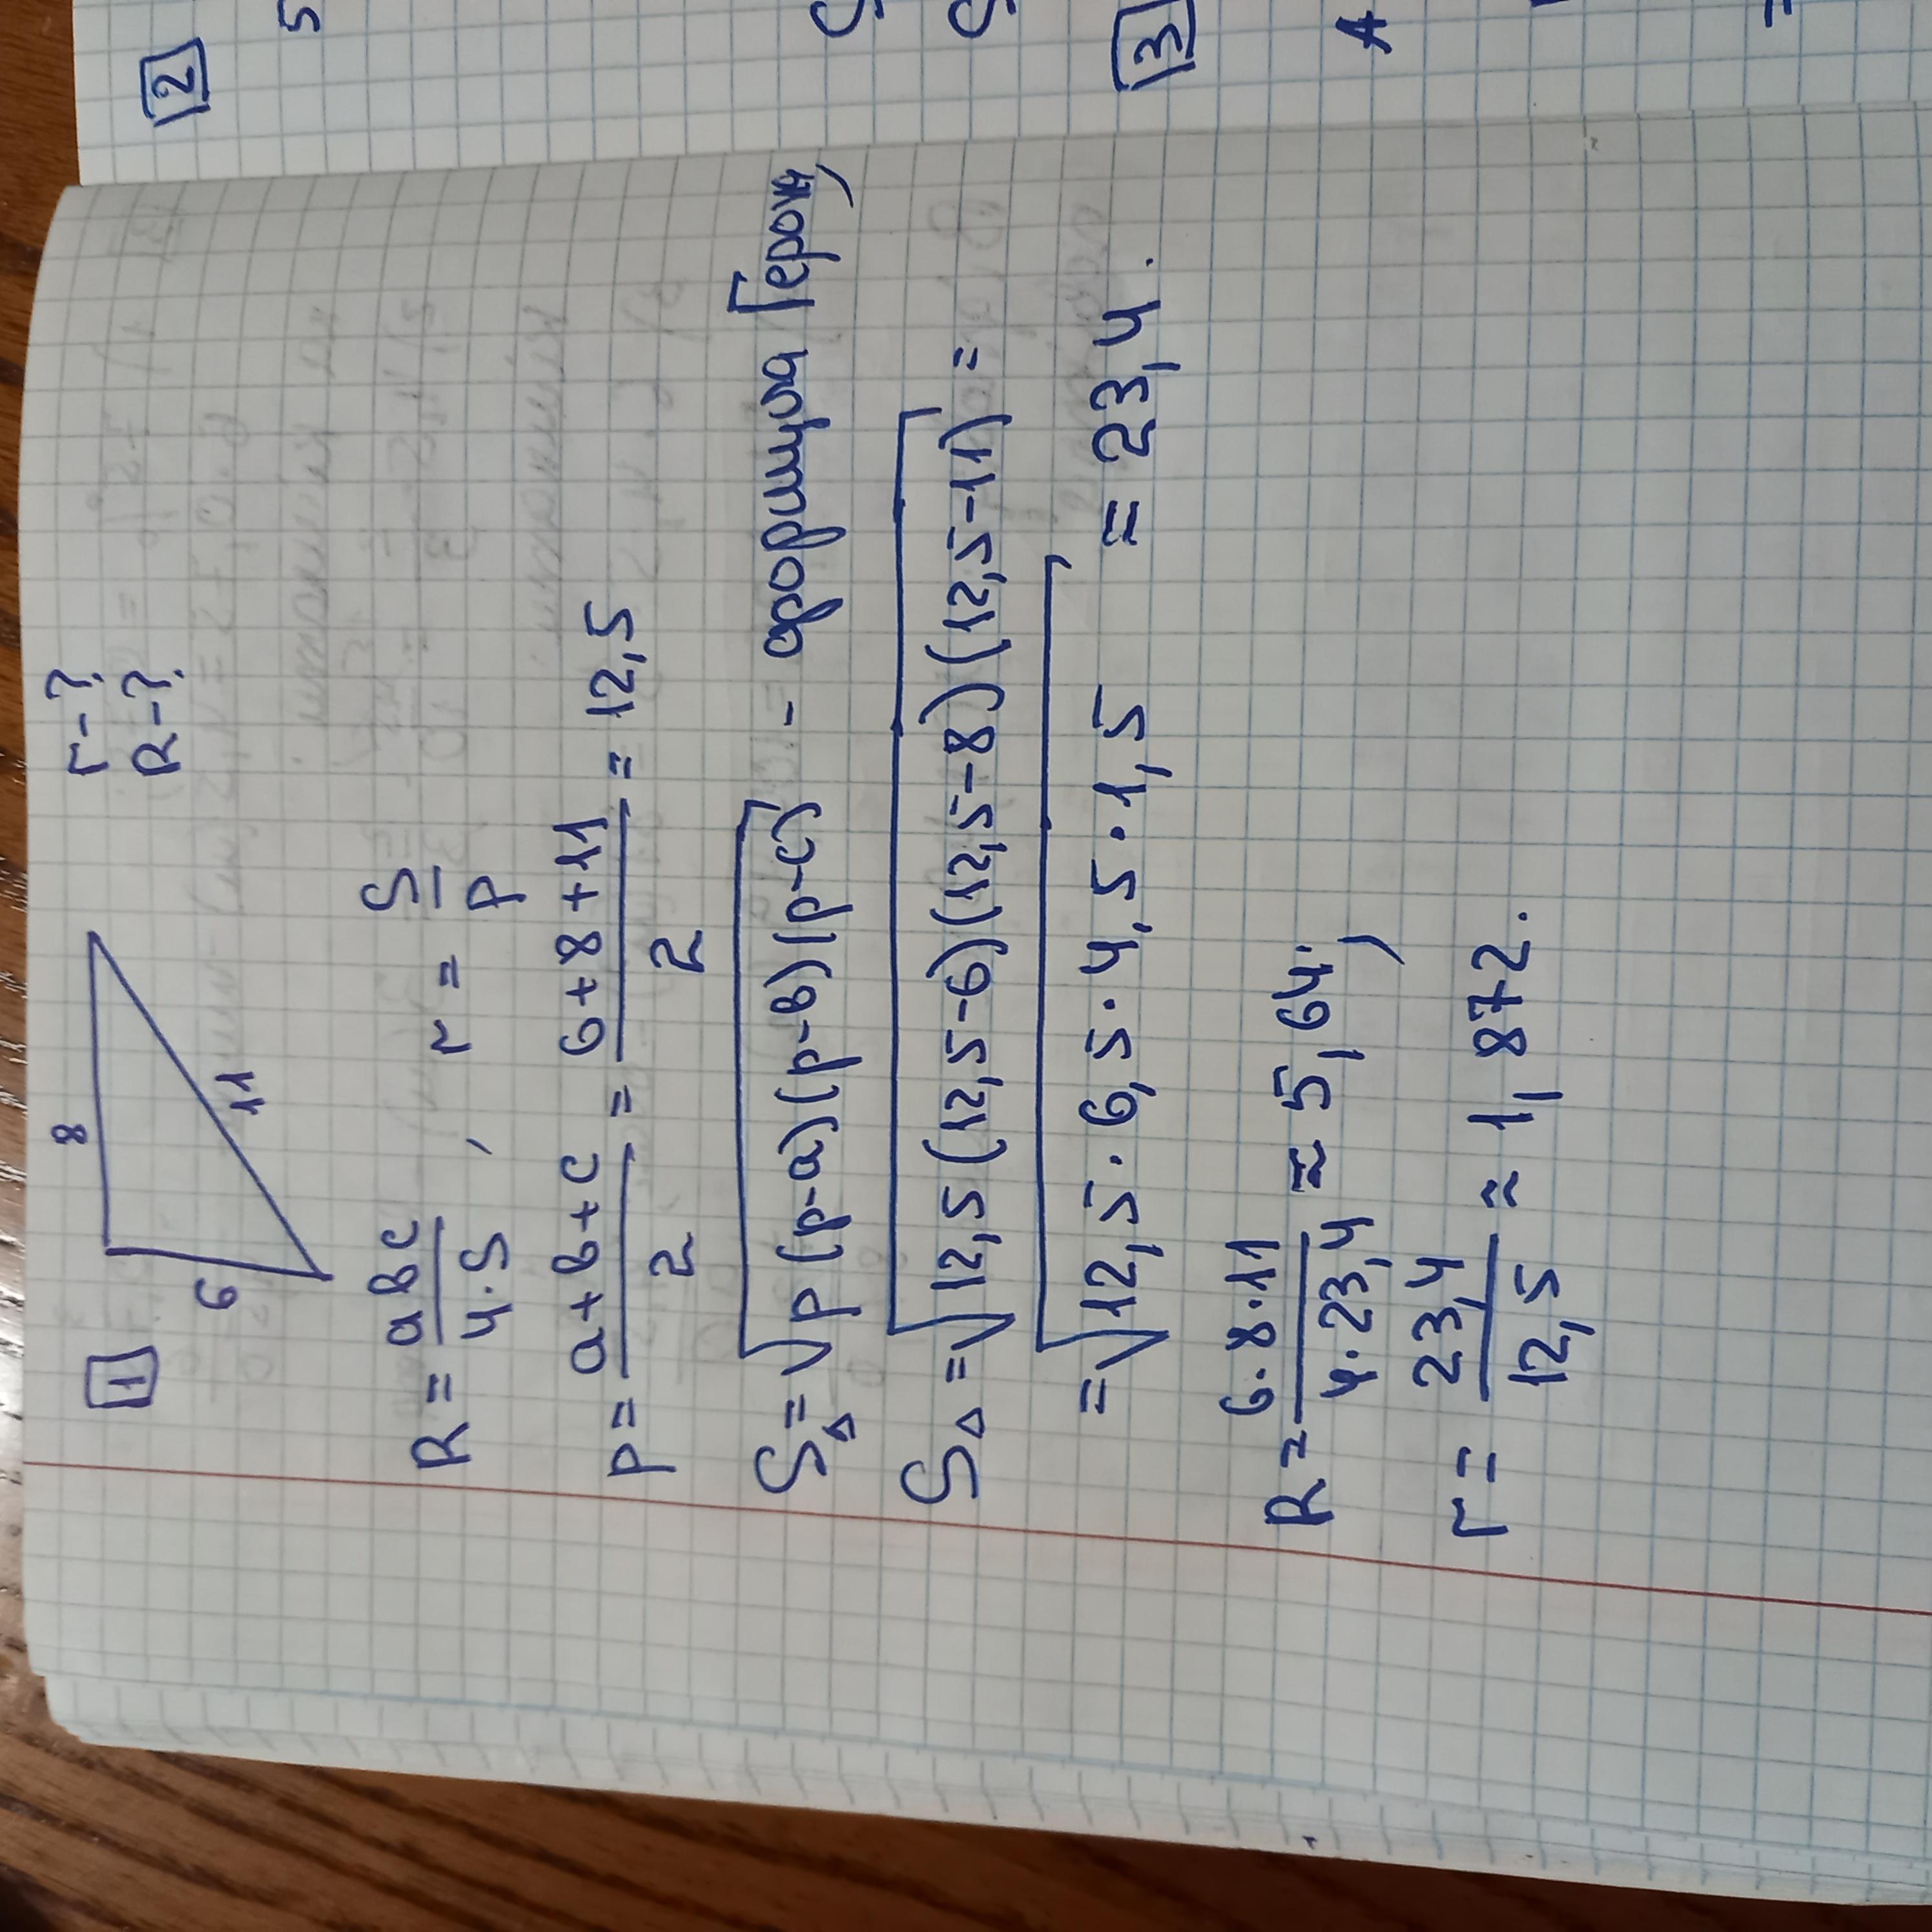 1
8
6
11
r-?
R-?
R = abc / 4·S , r = S / p
p = a+b+c / 2 = 6+8+11 / 2 = 12,5
S△ = √p(p-a)(p-b)(p-c) - формула Герона
S△ = √12,5(12,5-6)(12,5-8)(12,5-11) =
= √12,5·6,5·4,5·1,5 = 23,4.
R = 6·8·11 / 4·23,4 ≈ 5,64;
r = 23,4 / 12,5 ≈ 1,872.
2
5
3
A